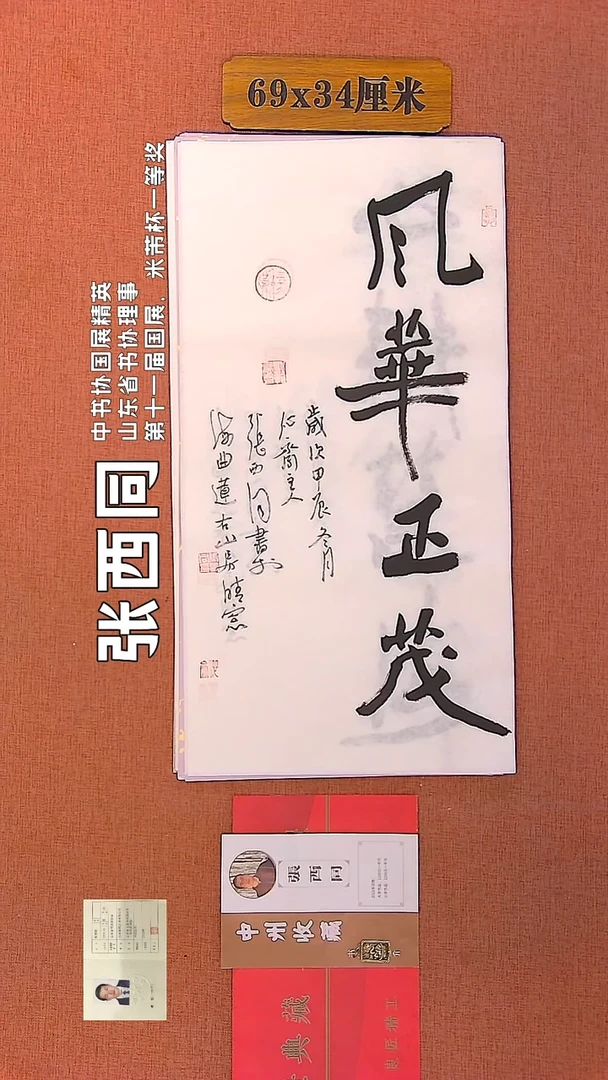 69x34厘米
风華正茂
歲次甲辰冬月
心齋主人
張西同書於
海曲蓮古山房晴窓
中书协国展精英
山东省书协理事
第十一届国展，米芾杯一等奖
张西同
張西同
中州收藏
典藏